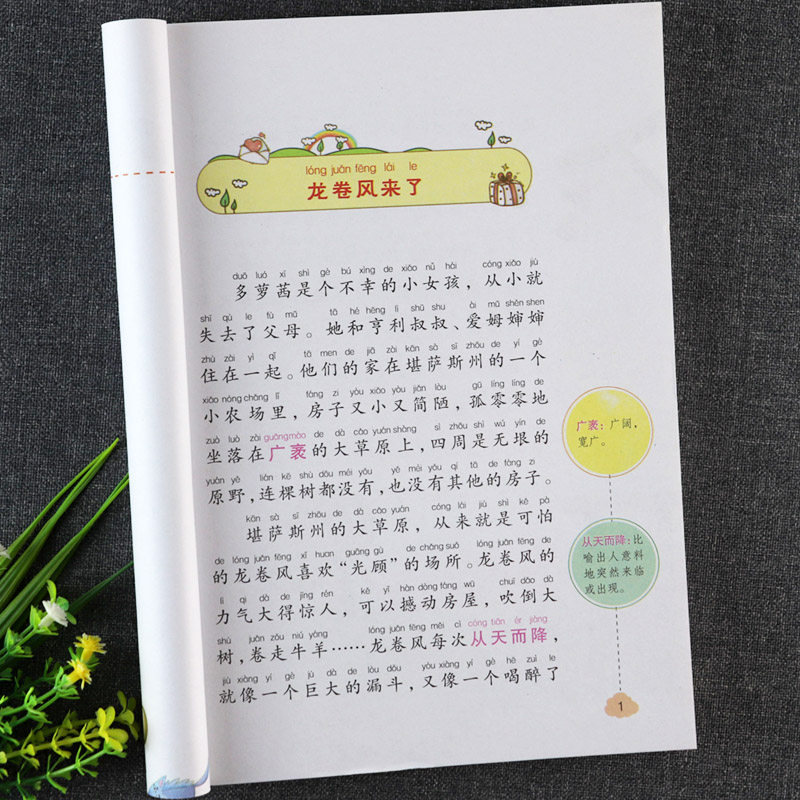 lóng juǎn fēng lái le
龙卷风来了
duō luó xī shì gè bú xìng de xiǎo nǚ hái cóng xiǎo jiù
多萝茜是个不幸的小女孩，从小就
shī qù le fù mǔ tā hé hēng lì shū shu ài mǔ shěn shen
失去了父母。她和亨利叔叔、爱姆婶婶
zhù zài yì qǐ tā men de jiā zài kān sà sī zhōu de yí gè
住在一起。他们的家在堪萨斯州的一个
xiǎo nóng chǎng lǐ fáng zi yòu xiǎo yòu jiǎn lòu gū líng líng de
小农场里，房子又小又简陋，孤零零地
zuò luò zài guǎng mào de dà cǎo yuán shàng sì zhōu shì wú yín de
坐落在广袤的大草原上，四周是无垠的
yuán yě lián kē shù dōu méi yǒu yě méi yǒu qí tā de fáng zi
原野，连棵树都没有，也没有其他的房子。
kān sà sī zhōu de dà cǎo yuán cóng lái jiù shì kě pà
堪萨斯州的大草原，从来就是可怕
de lóng juǎn fēng xǐ huan guāng gù de chǎng suǒ lóng juǎn fēng de
的龙卷风喜欢“光顾”的场所。龙卷风的
lì qì dà de jīng rén kě yǐ hàn dòng fáng wū chuī dǎo dà
力气大得惊人，可以撼动房屋，吹倒大
shù juǎn zǒu niú yáng lóng juǎn fēng měi cì cóng tiān ér jiàng
树，卷走牛羊……龙卷风每次从天而降，
jiù xiàng yí gè jù dà de lòu dǒu yòu xiàng yí gè hē zuì le
就像一个巨大的漏斗，又像一个喝醉了
广袤：广阔，
宽广。
从天而降：比
喻出人意料
地突然来临
或出现。
1